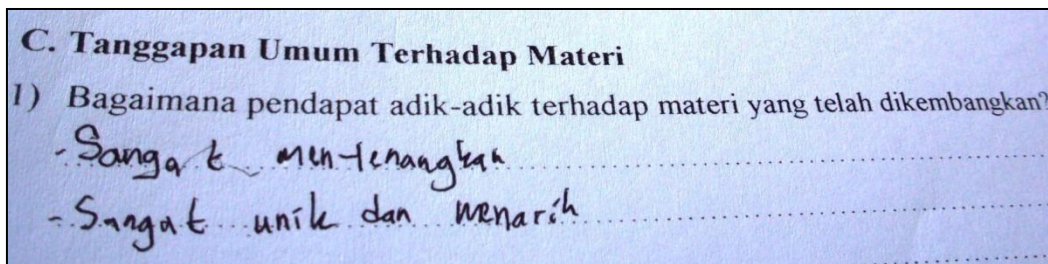 C. Tanggapan Umum Terhadap Materi
1) Bagaimana pendapat adik-adik terhadap materi yang telah dikembangkan?
- Sangat mentenangkan
- Sangat unik dan menarik